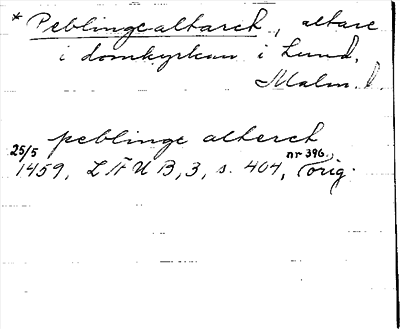 * Peblingealtaret, altare
i domkyrkan i Lund,
Malm. l.
peblinge alteret
25/5 1459, L Ä U B, 3, s. 404, nr 396, orig.